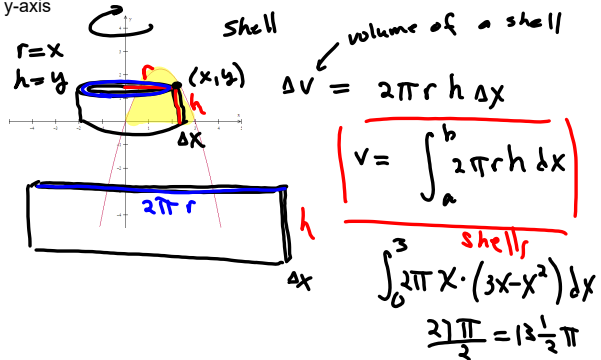 y-axis
shell
volume of a shell
r=x
h=y
r
(x,y)
h
Δx
ΔV = 2πrhΔx
V = ∫_a^b 2πrh dx
shells
2πr
h
Δx
∫_0^3 2πx·(3x-x²)dx
27π/2 = 13 1/2 π